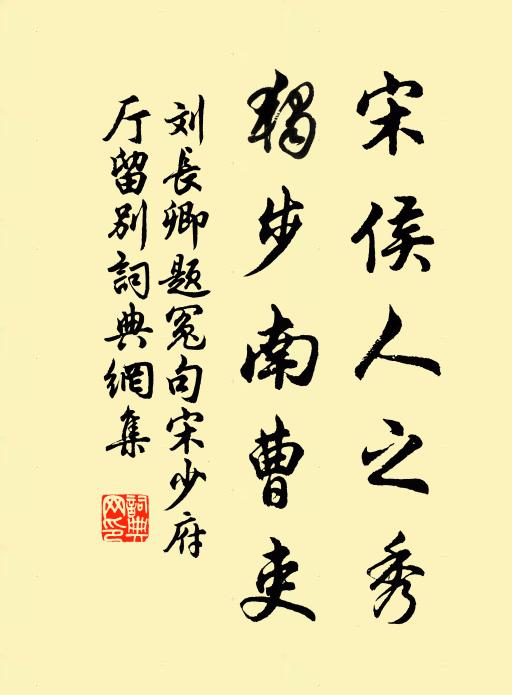 宋侯人之秀
獨步南曹吏
刘長卿題冤句宋少府
厅留別詞典網集
詞典
网印